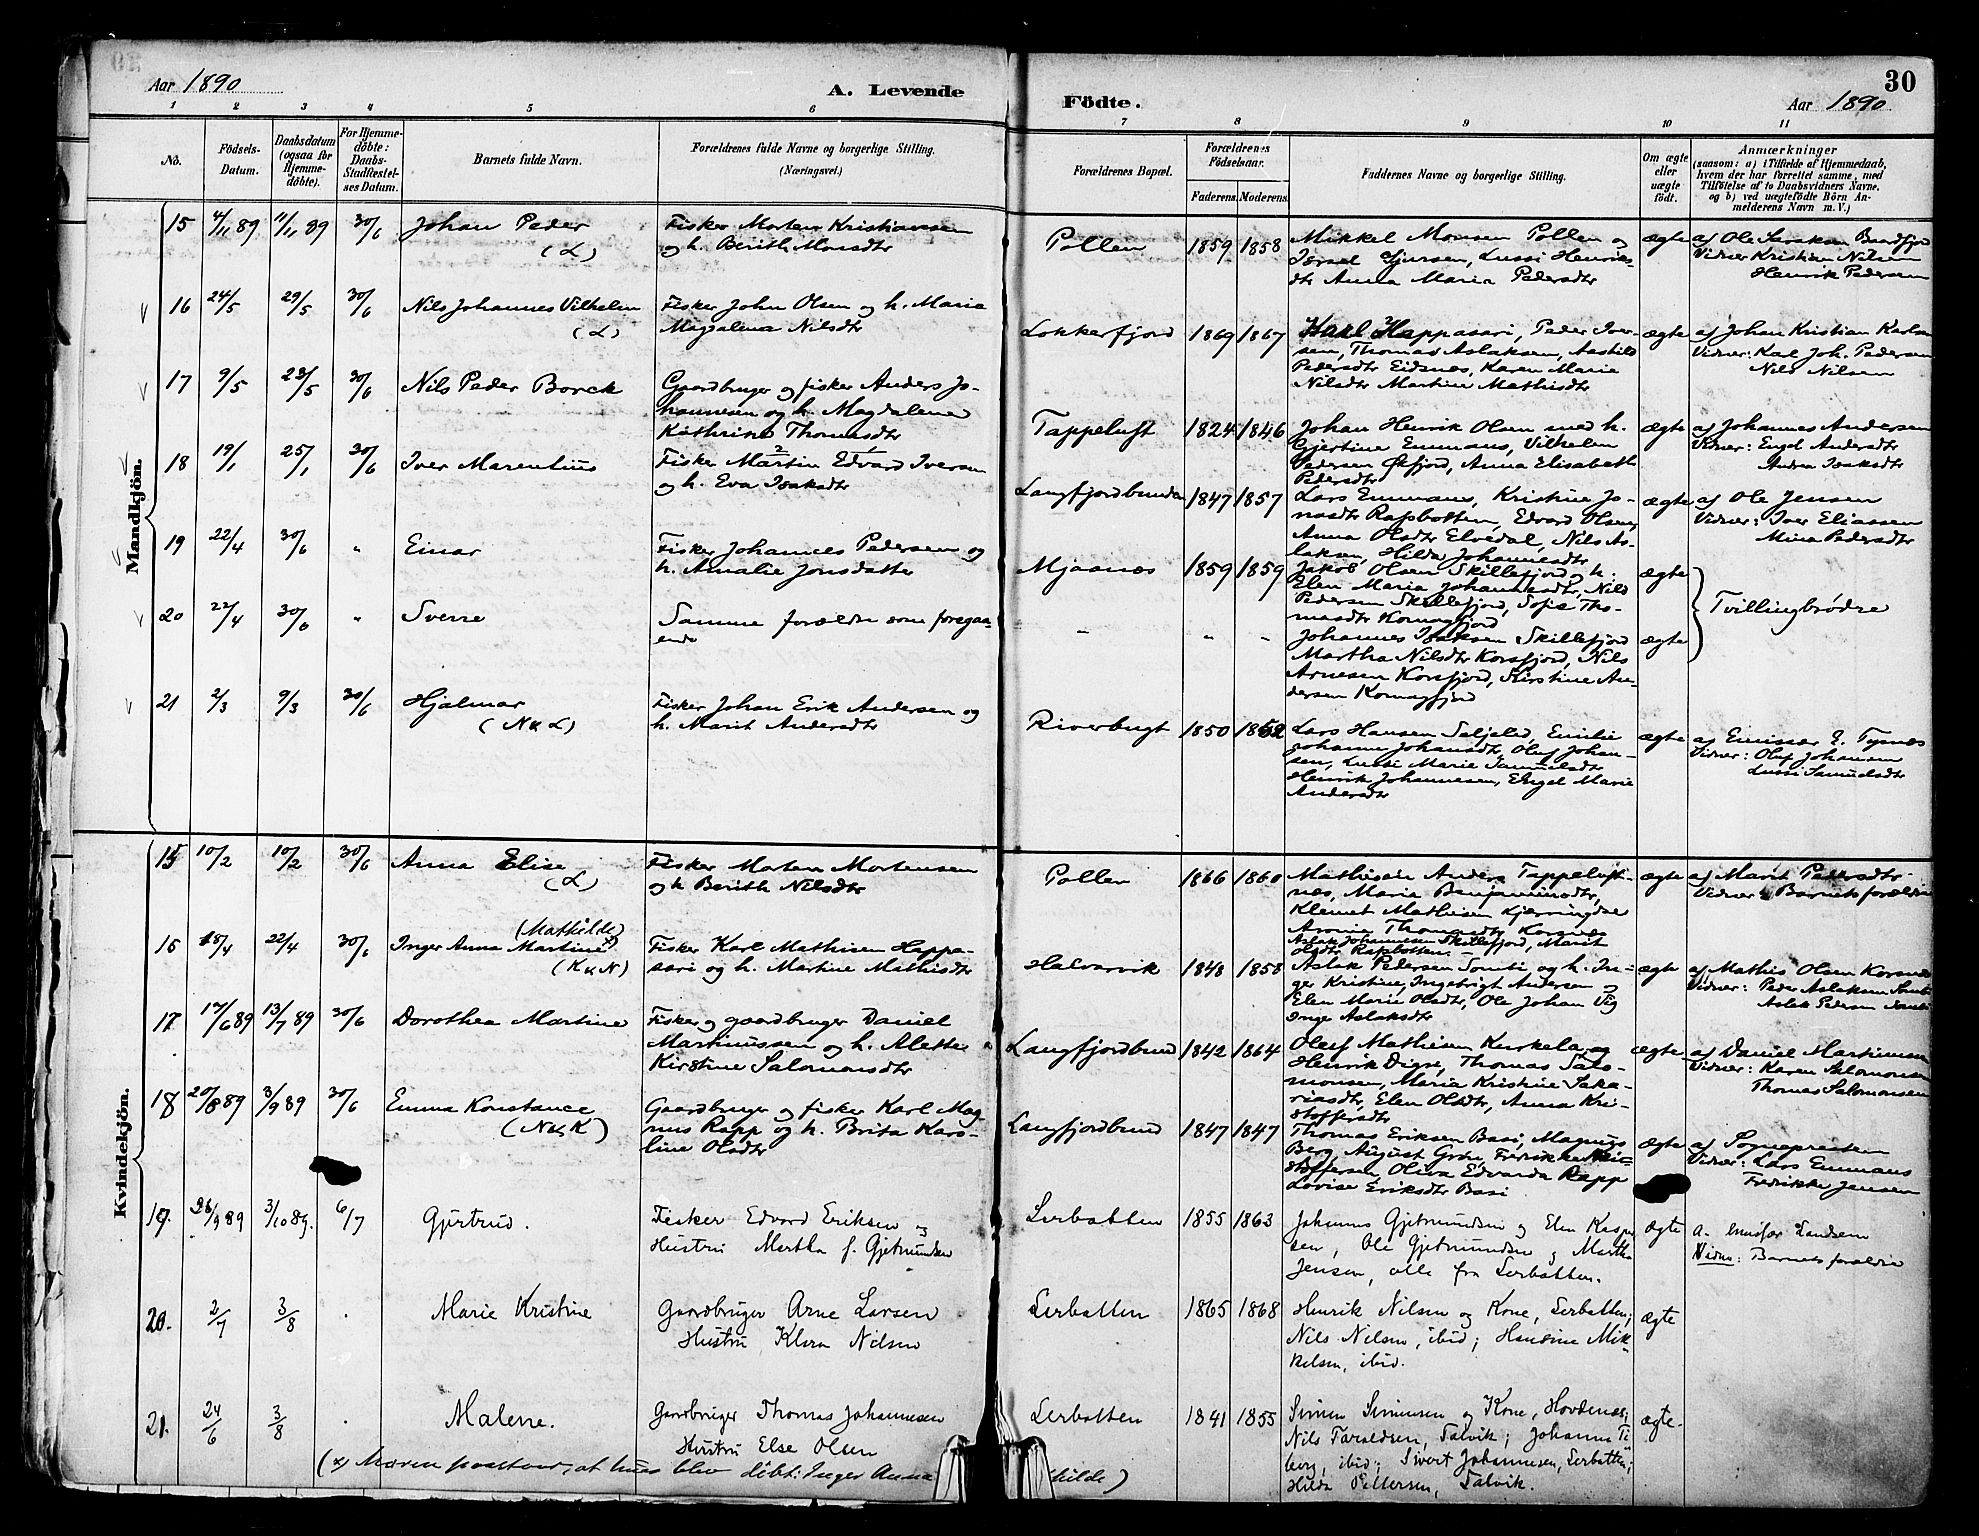 Aar 1890
A. Levende
Födte.
Aar 1890
30
1 2 3 4 5 6 7 8 9 10 11
No.
Födsels-Datum.
Daabsdatum (ogsaa for Hjemmedöbte).
For Hjemmedöbte: Daabs-Stadfæstelses Datum.
Barnets fulde Navn.
Forældrenes fulde Navne og borgerlige Stilling. (Næringsvei.)
Forældrenes Bopæl.
Forældrenes Födselsaar.
Faderens. Moderens.
Faddernes Navne og borgerlige Stilling.
Om ægte eller uægte födt.
Anmærkninger
(saasom: a) i Tilfælde af Hjemmedaab,
hvem der har forrettet samme, med
Tilföielse af to Daabsvidners Navne.
og b) ved uægtefödte Börn Anmelderens Navn m. V.)
Mandkjön.
15 4/11 89 11/11 89 30/6 Johan Peder
(L)
Fisker Morten Kristiansen
og h. Berith Monsdtr
Pollen 1859 1858
Mikkel Monsen Pollen og
Israel Gjursen, Lussi Henriks-
dtr Anna Maria Pedersdtr
ægte
af Ole Isaksen Baadfjor
Vidner Kristian Nilsen
Henrik Pedersen
16 24/5 29/5 30/6 Nils Johannes Vilhelm
(L)
Fisker John Olsen og h. Maria
Magdalena Nilsdtr
Lokkerfjord 1869 1867
Karl Happasari, Peder Iver-
sen, Thomas Aslaksen, Aashild
Pedersdtr Eidsnes, Karen Marie
Nilsdtr Martine Mathisdtr
ægte
af Johan Kristian Karlsen
Vidner: Karl Joh. Pedersen
Nils Nilsen
17 9/5 23/5 30/6 Nils Peder Borck
Gaardbruger og fisker Anders Jo-
hannesen og h. Magdalena
Kathrine Thomasdtr
Tappeluft 1824 1846
Johan Henrik Olsen med h.
Gjertine Emmans, Vilhelm
Pedersen Øxfjord, Anna Elisabeth
Pedersdtr
ægte
af Johannes Andersen
Vidner: Engel Andersdtr
Andrea Isaksdtr
18 19/1 25/1 30/6 Iver Marentius
Fisker Martin Edvard Iversen
og h. Eva Isaksdtr
Langfjordbunden 1847 1857
Lars Emmans, Kristine Jo-
nasdtr Rapbotten, Edvard Olsen,
Anna Olsdtr Elvedal, Nils As-
laksen, Hilda Johannesdtr
ægte
af Ole Jensen
Vidner: Iver Eliassen
Mina Pedersdtr
19 22/4 30/6 " Einar
Fisker Johannes Pedersen og
h. Amalie Jonsdatter
Mjaanes 1859 1859
Jakob Olsen Skillefjord, h.
Elen Maria Johannesdtr, Nils
Pedersen Skillefjord, Sofie Tho-
masdtr Komagfjord
ægte
Tvillingbrødre
20 22/4 30/6 " Sverre
Samme forældre som foregaa-
ende
" " "
Johannes Isaksen Skillefjord
Martha Nilsdtr Korsfjord, Nils
Arnesen Korsfjord, Kirstine An-
dersen Komagfjord
ægte
21 2/3 9/3 30/6 Hjalmar
(N & L)
Fisker Johan Erik Andersen og
h. Marit Andersdtr
Riverbugt 1850 1852
Lars Hansen Seljelid, Emilie
Johanne Johansdtr, Oluf Johan-
sen, Lussi Marie Samuelsdtr
Henrik Johannesen, Engel Marie
Andersdtr
ægte
af Emissær E. Tysnæs
Vidner: Oluf Johansen
Lussi Samuelsdtr
Kvindekjön.
15 10/2 10/2 30/6 Anna Elise
(L)
Fisker Morten Mortensen
og h Berith Nilsdtr
Pollen 1866 1860
Mathisen Anders Tappeluft-
næs, Marie Benjaminsdtr,
Klemet Mathisen Kjerringdal
Aronie Thomasdtr Korsnes
ægte
af Marit Pedersdtr
Vidner: Barnets forældre
(Mathilde)
16 15/4 22/4 30/6 Inger Anna Martine x)
(K & N)
Fisker Karl Mathisen Happa-
sari og h. Martine Mathisdtr
Halvarvik 1848 1858
Aslak Johannesen Skillefjord, Marit
Olsdtr Rapbotten. –
Aslak Pedersen Somti og h. In-
ger Kristine, Ingebrigt Andersen og
Elen Marie Olsdtr, Ole Johan Vig
Inge Aslaksdtr
ægte
af Mathis Olsen Korsnes
Vidner: Peder Aslaksen Somti
Aslak Pedersen Somti
17 17/6 89 13/7 89 30/6 Dorothea Martine
Fisker og gaardbruger Daniel
Martinussen og h. Alette
Kirstine Salomonsdtr
Langfjordbund 1842 1864
Oluf Mathisen Kurkela og
Henrik Digre, Thomas Salo-
monsen, Maria Kristine Saka-
riasdtr, Elen Olsdtr, Anna Kri-
stoffersdtr
ægte
af Daniel Martinussen
Vidner: Karen Salomonsen
Thomas Salomonsen
18 20/8 89 3/9 89 30/6 Emma Konstance
(N & K)
Gaardbruger og fisker Karl Mag-
nus Rapp og h. Brita Karo-
line Olsdtr
Langfjordbund 1847 1847
Thomas Eriksen Basi, Magnus
Berg, August Grøn, Fredrikke Kri-
stoffersen, Oliva Edvarda Rapp
Lovise Eriksdtr Basi
ægte
af Sognepresten
Vidner: Lars Emmans
Fredrikke Jensen
19. 26/9 89 3/10 89. 6/7 Gjertrud.
Fisker Edvard Eriksen og
Hustru Martha f. Gjetmundsen
Lerbotten 1855 1863
Johannes Gjetmundsen og Elen Kasper
sen, Ole Gjetmundsen og Martha
Jensen, alle fra Lerbotten.
ægte
Vidner: Barnets forældre
20. 2/7 3/8 . Marie Kristine
Gaardbruger Arne Larsen
Hustru Klara Nilsen
Lerbotten 1865 1868
Henrik Nilsen og Kone, Lerbotten;
Nils Nilsen, ibid; Hansine Mik-
kelsen, ibid.
ægte
21. 24/6 3/8 . Malene.
Gaardbruger Thomas Johannesen
Hustru Else Olsen
Lerbotten 1841 1855
Simon Simonsen og Kone, Hovdenæs;
Nils Taraldsen, Talvik; Johannes Ti-
berg, ibid; Sivert Johannesen, Lerbotten;
Hilda Pettersen, Talvik.
ægte.
(x) Moren paastaar, at hun blev döbt: Inger Anna
hilde)